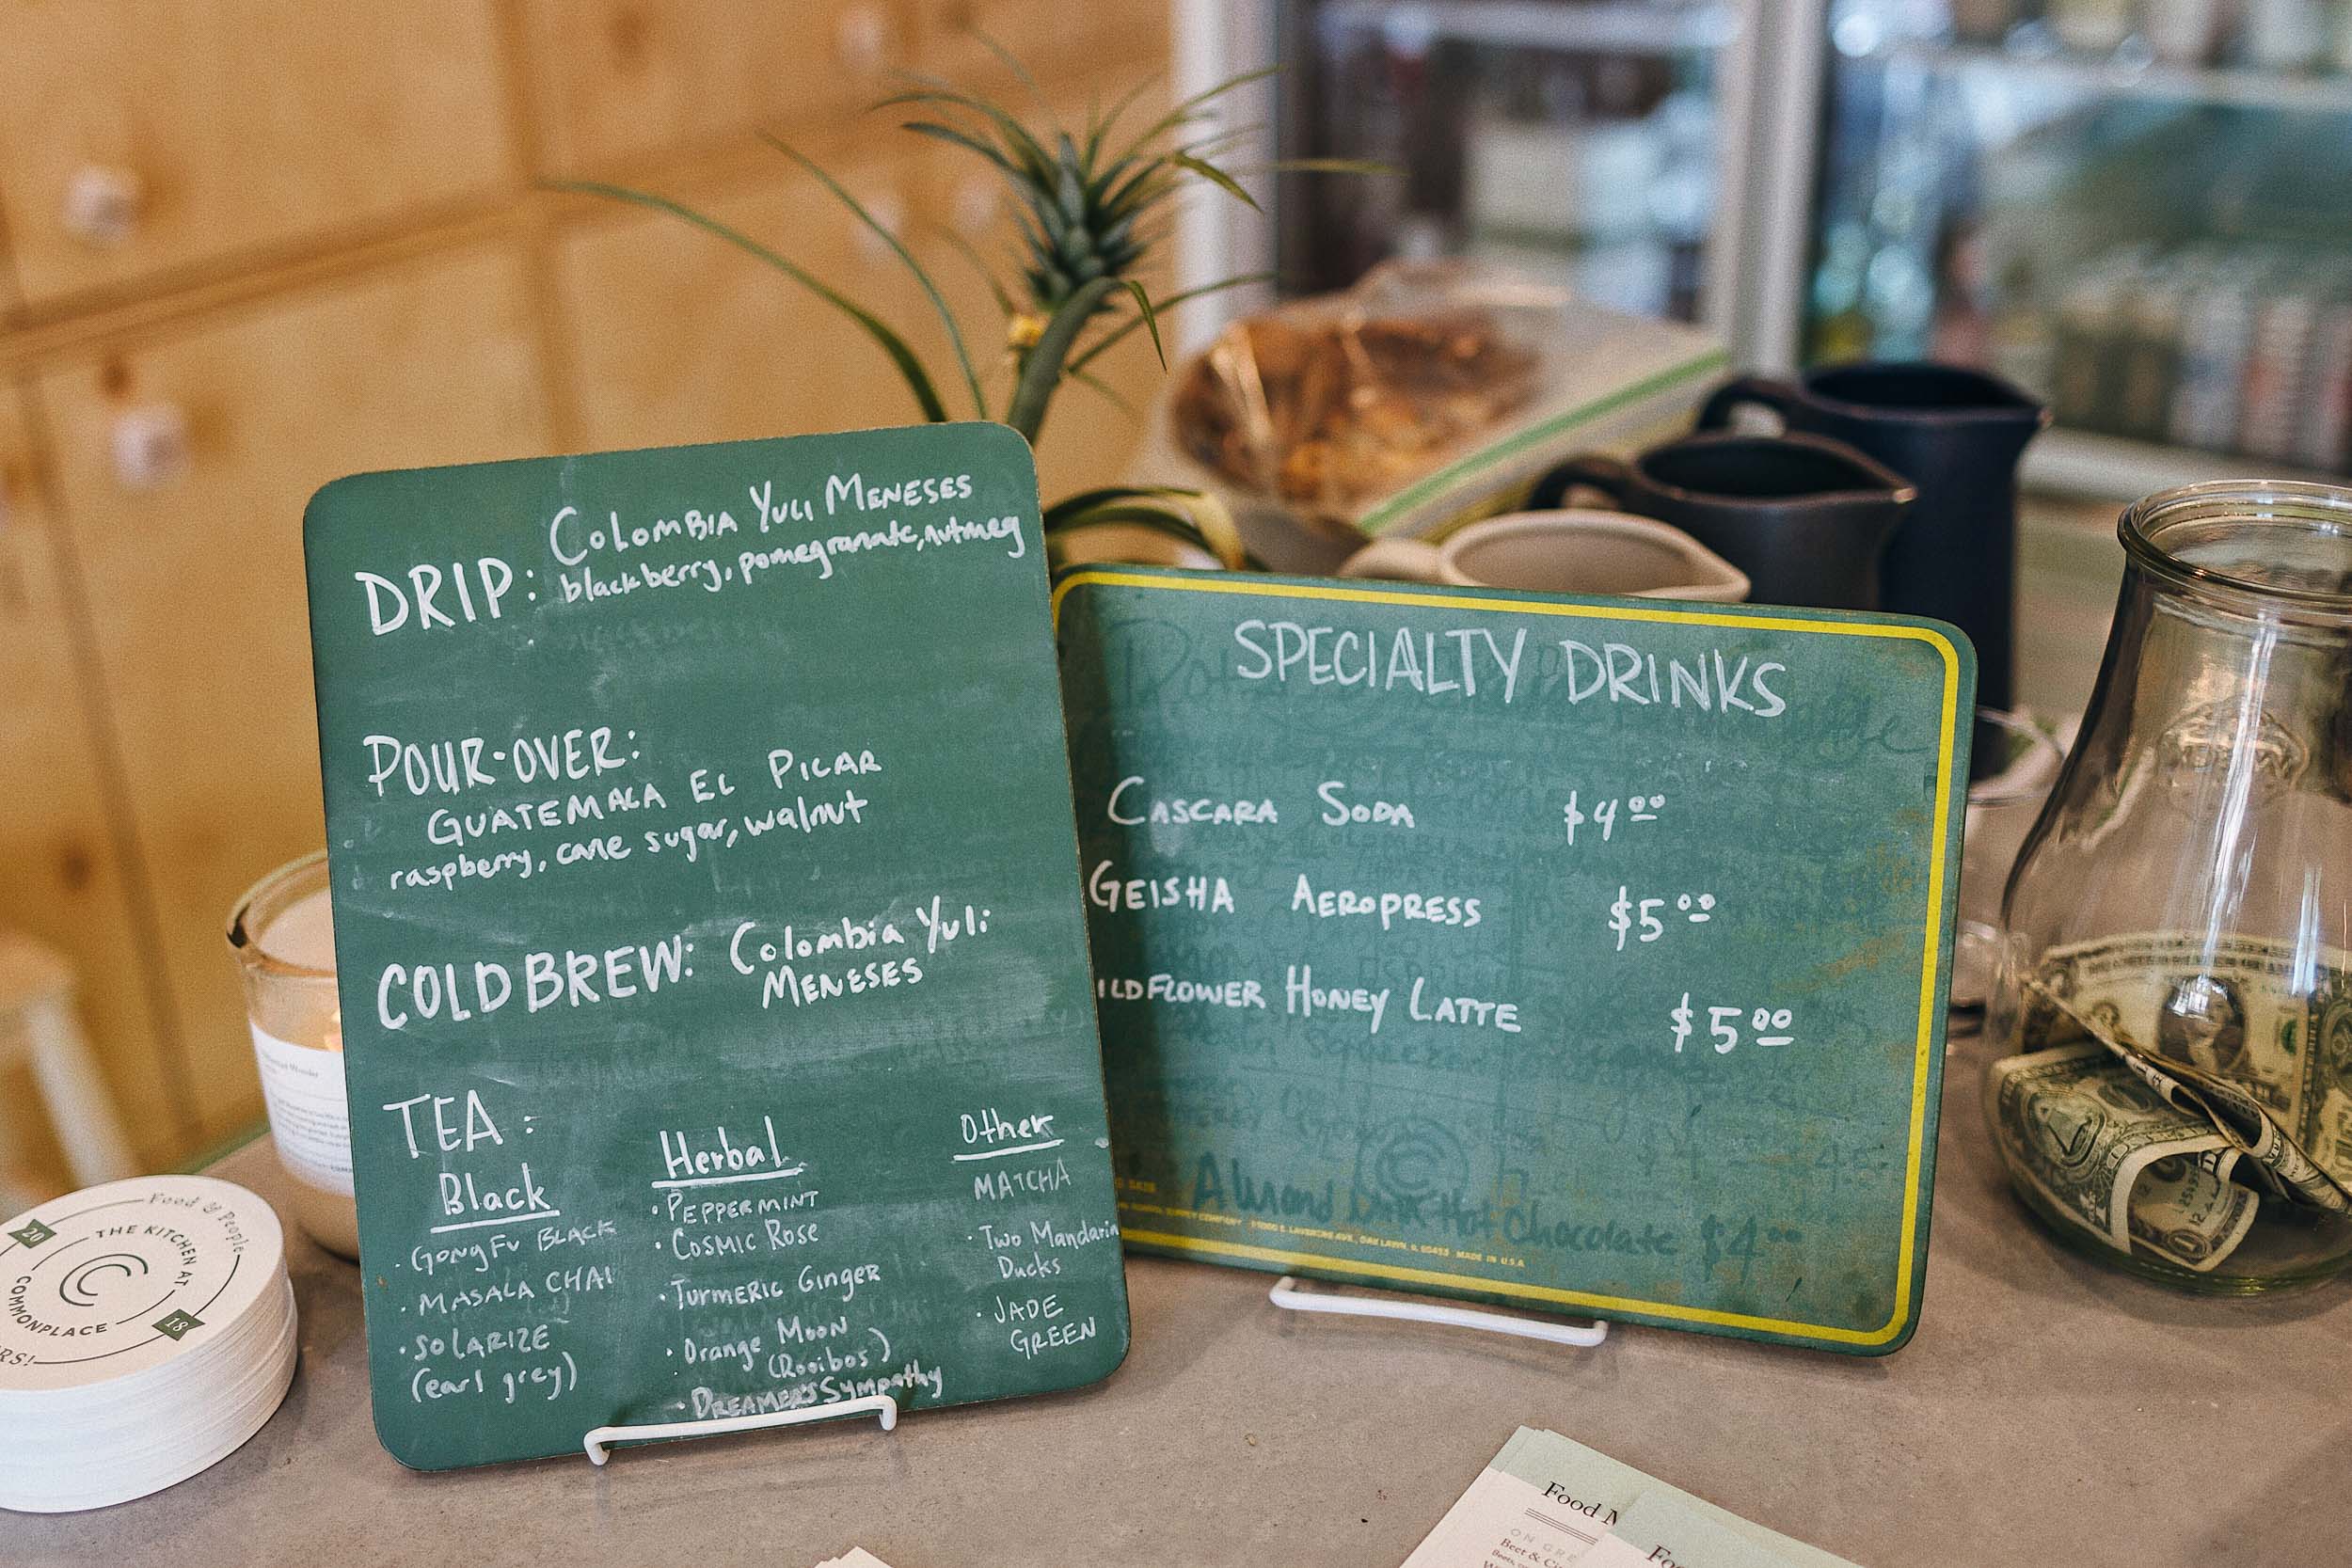 Colombia Yuli Meneses
DRIP: blackberry, pomegranate, nutmeg
POUR-OVER:
GUATEMALA EL PILAR
raspberry, cane sugar, walnut
COLD BREW: Colombia Yuli
MENESES
TEA:
Black
· GONGFU BLACK
· MASALA CHAI
· SOLARIZE
(earl grey)
Herbal
· PEPPERMINT
· COSMIC ROSE
· TURMERIC GINGER
· Orange Moon
(Rooibos)
· DREAMER'S Sympathy
Other
MATCHA
· Two Mandarin
Ducks
· JADE
GREEN
SPECIALTY DRINKS
CASCARA SODA $4.00
GEISHA AEROPRESS $5.00
ILDFLOWER HONEY LATTE $5.00
Almond Milk Hot Chocolate $4.00
OAK LAWN, IL 60453 MADE IN U.S.A.
Food & People
THE KITCHEN AT
COMMONPLACE
20
18
RS!
Food
ON GRE
Beet & Ci
Fo